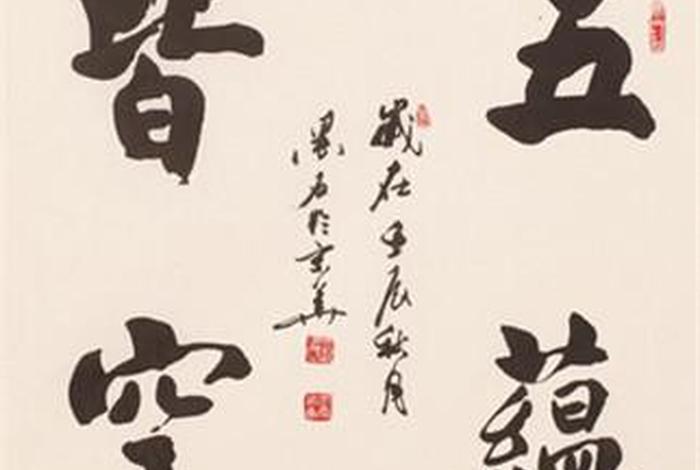 五蘊
皆空
歲在壬辰秋月
於京華